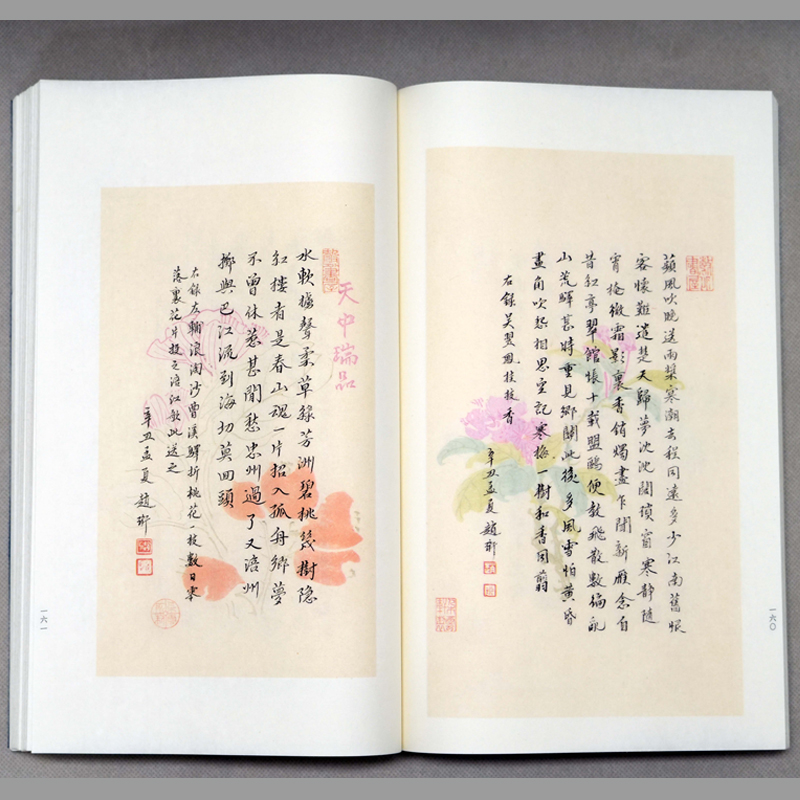 蘋風吹晚送雨槳寒潮去程同遠多少江南舊恨
客懷難遣楚天歸夢沈沈閣瑣窗寒靜隨
宵掩微霜影裏香銷燭盡乍聞新雁念自
昔紅亭翠館悵十載盟鷗便教飛散數編亂
山荒驛甚時重見鄉關此後多風雪怕黃昏
畫角吹起相思空記寒梅一樹和香同翦
右錄吳翌鳳桂枝香
辛丑孟夏趙珩
一六〇
天中瑞品
水軟櫓聲柔草綠芳洲碧桃幾樹隱
紅樓者是春山魂一片招入孤舟鄉夢
不曾休惹甚閒愁忠州過了又涪州
擲與巴江流到海切莫回頭
右錄左輔浪淘沙曹溪驛折桃花一枝數日零
落裹花片投之涪江歌此送之
辛丑孟夏趙珩
一六一